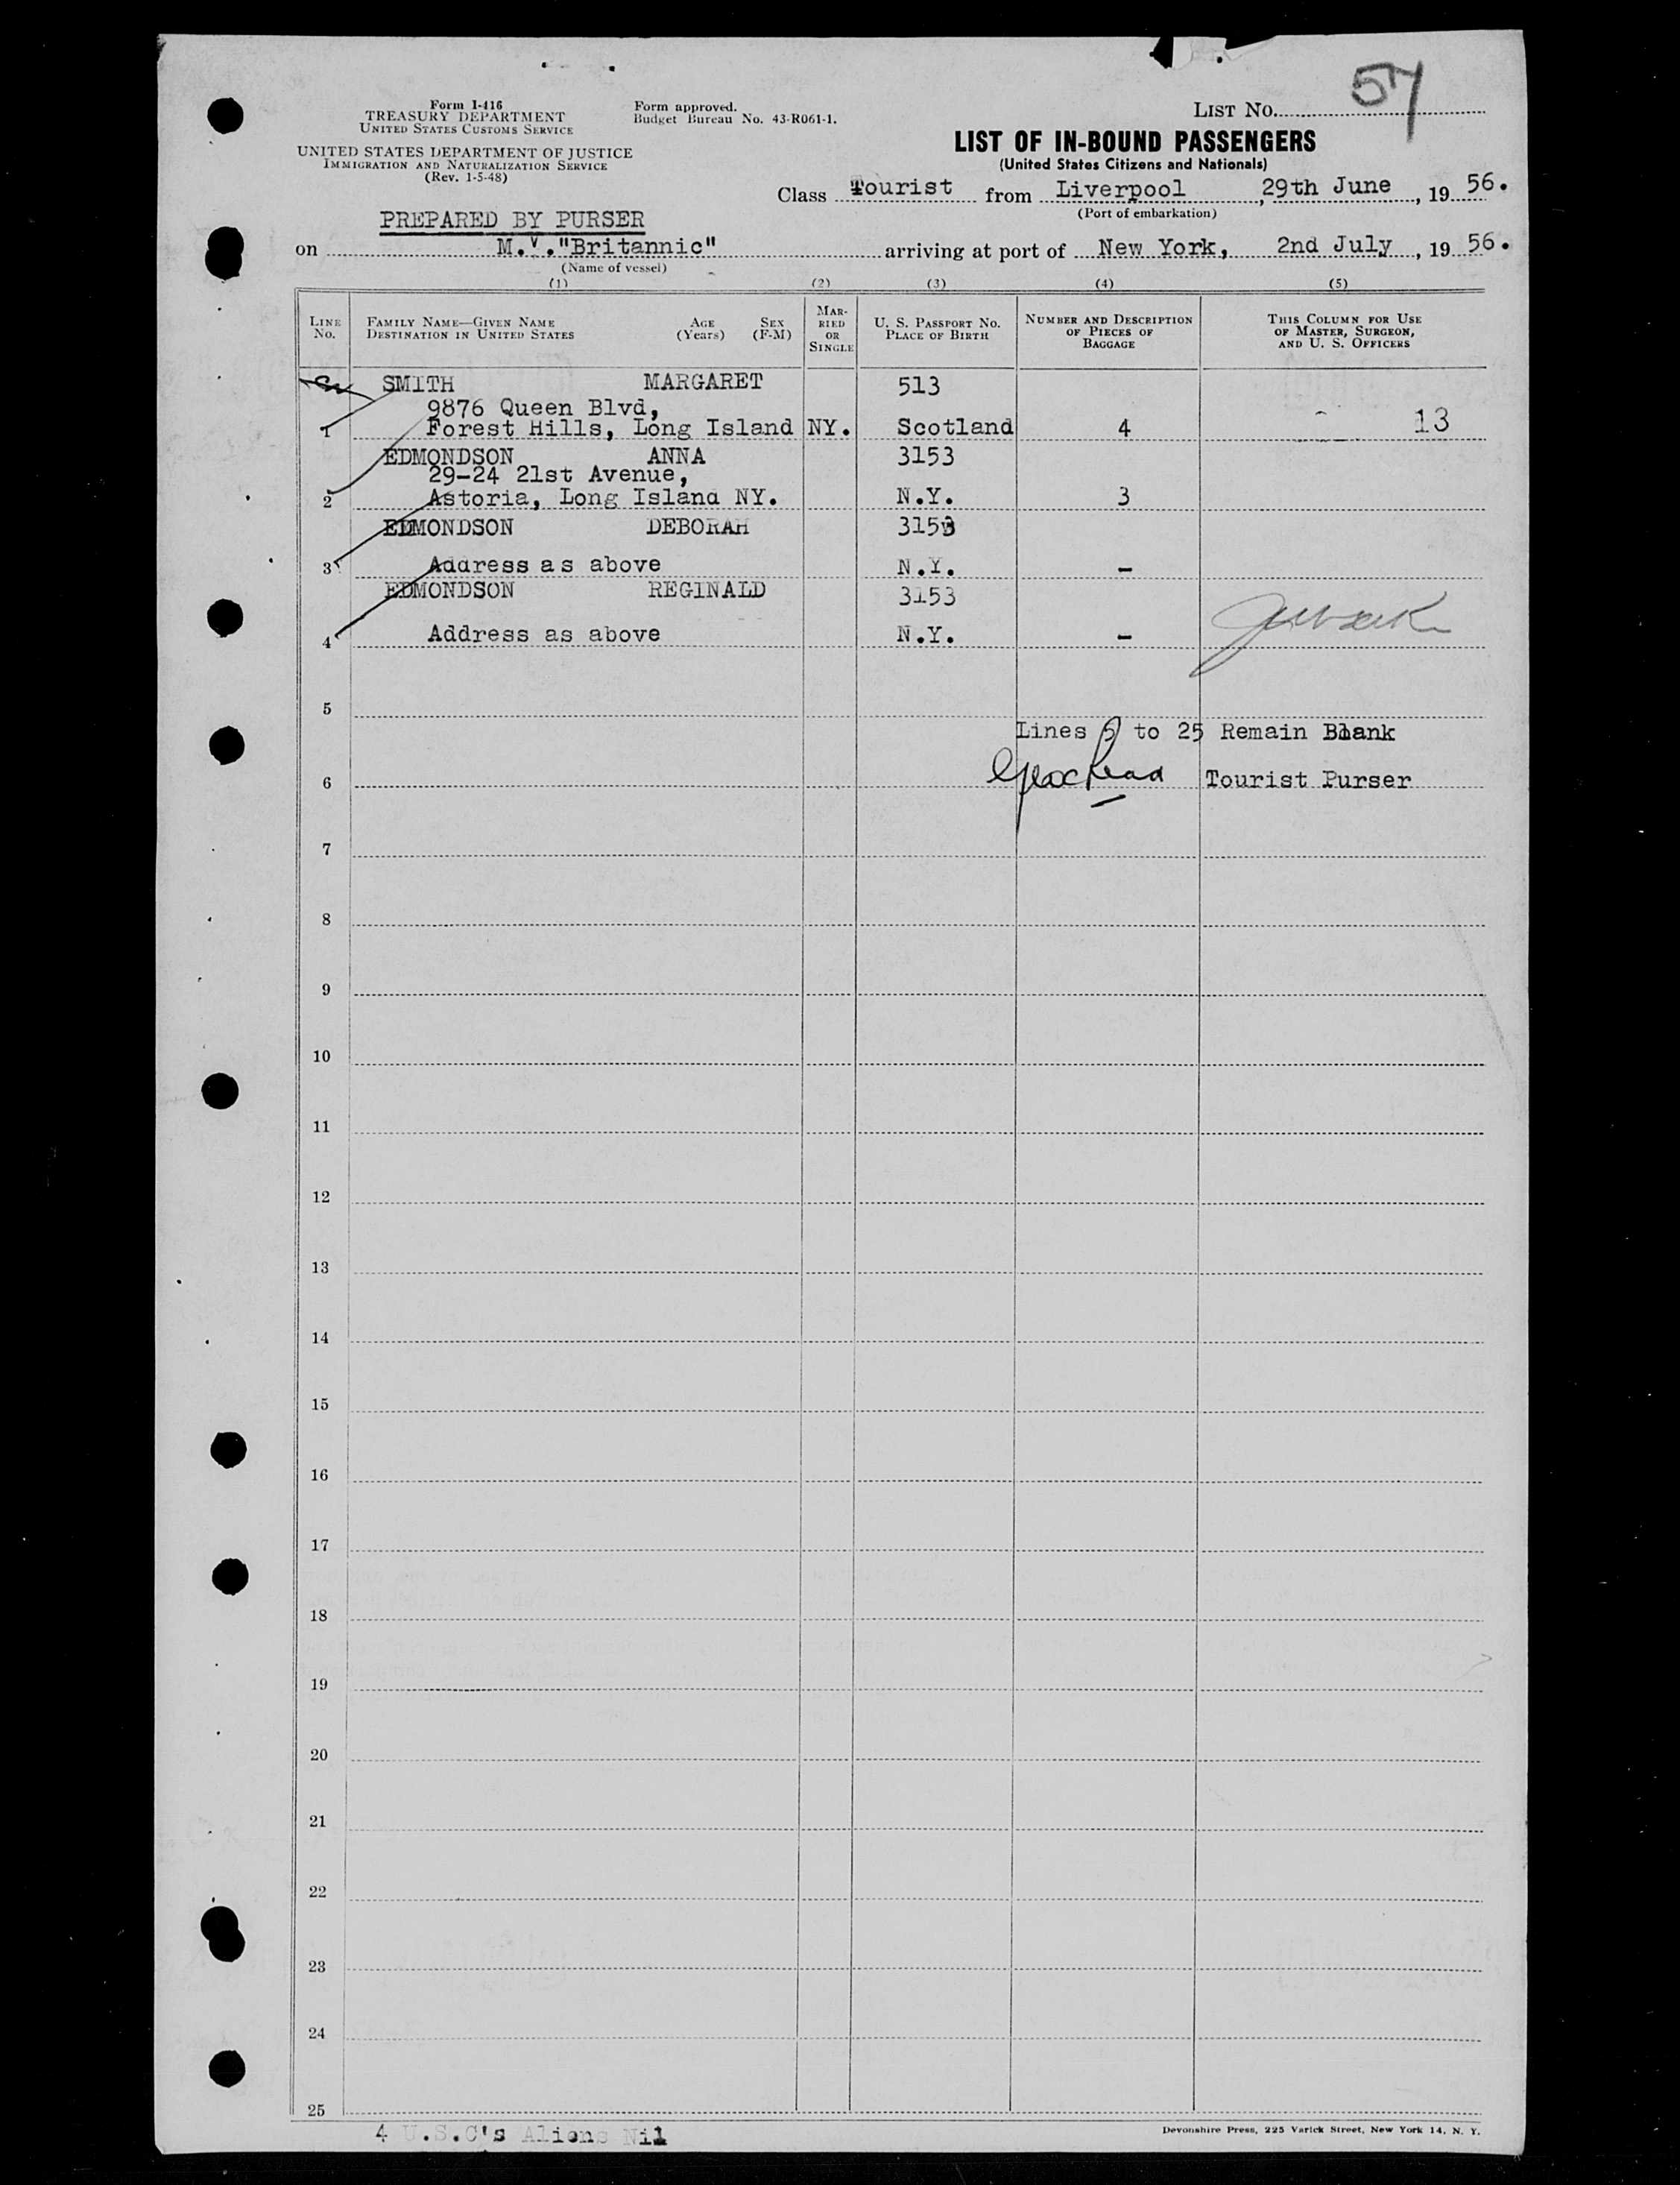 Form I-416
TREASURY DEPARTMENT
UNITED STATES CUSTOMS SERVICE
UNITED STATES DEPARTMENT OF JUSTICE
IMMIGRATION AND NATURALIZATION SERVICE
(Rev. 1-5-48)
Form approved.
Budget Bureau No. 43-R061-1.
LIST No. 57
LIST OF IN-BOUND PASSENGERS
(United States Citizens and Nationals)
Class Tourist from Liverpool, 29th June, 19 56.
(Port of embarkation)
PREPARED BY PURSER
on M.V."Britannic" arriving at port of New York, 2nd July, 19 56.
(Name of vessel)
(1) (2) (3) (4) (5)
LINE No. FAMILY NAME—GIVEN NAME DESTINATION IN UNITED STATES AGE (Years) SEX (F-M) MARRIED OR SINGLE U. S. PASSPORT NO. PLACE OF BIRTH NUMBER AND DESCRIPTION OF PIECES OF BAGGAGE THIS COLUMN FOR USE OF MASTER, SURGEON, AND U. S. OFFICERS
SMITH MARGARET 513
9876 Queen Blvd,
1 Forest Hills, Long Island NY. Scotland 4 13
EDMONDSON ANNA 3153
29-24 21st Avenue,
2 Astoria, Long Island NY. N.Y. 3
EDMONDSON DEBORAH 3153
3 Address as above N.Y. -
EDMONDSON REGINALD 3153
4 Address as above N.Y. -
5
Lines 5 to 25 Remain Blank
6 Tourist Purser
7
8
9
10
11
12
13
14
15
16
17
18
19
20
21
22
23
24
25
4 U.S.C's Aliens Nil
Devonshire Press, 225 Varick Street, New York 14, N. Y.